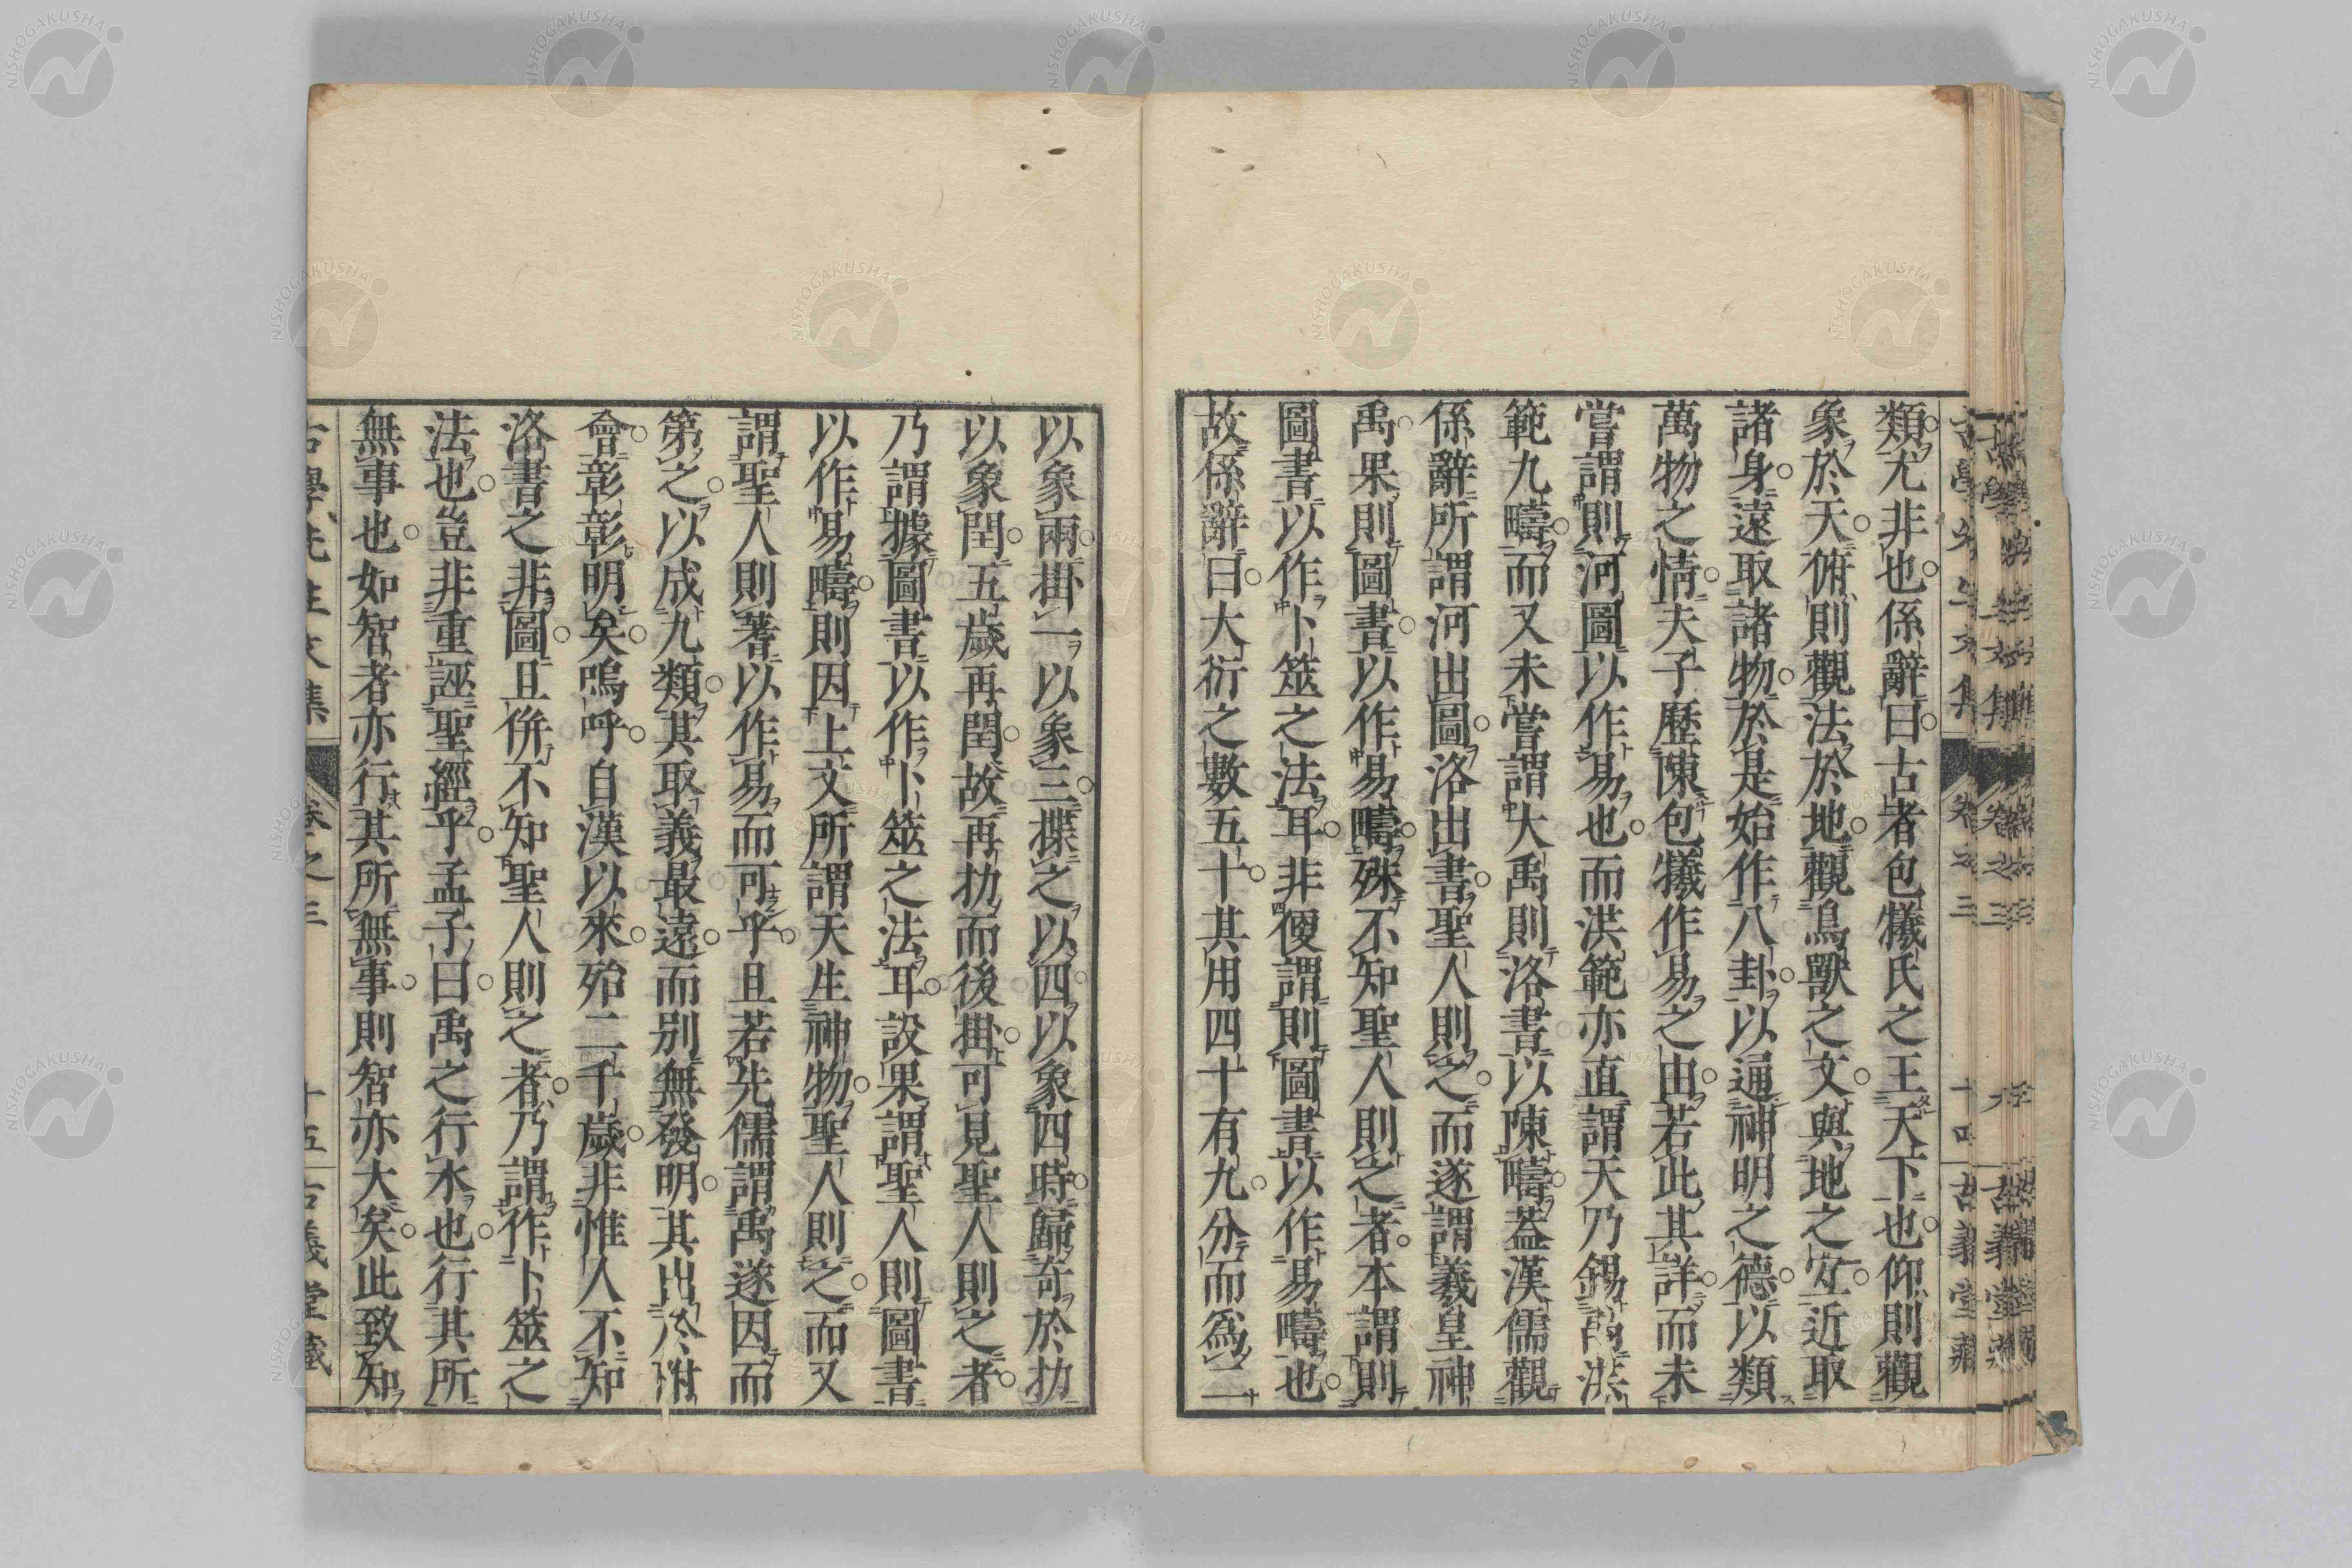 類尤非也係辭曰古者包犧氏之王天下也仰則觀
象於天俯則觀法於地觀鳥獸之文與地之宜近取
諸身遠取諸物於是始作八卦以通神明之德以類
萬物之情夫子歷陳包犧作易之由若此其詳而未
嘗謂則河圖以作易也而洪範亦直謂天乃錫禹洪
範九疇而又未嘗謂大禹則洛書以陳疇蓋漢儒觀
係辭所謂河出圖洛出書聖人則之而遂謂羲皇神
禹果則圖書以作易疇殊不知聖人則之者本謂則
圖書以作卜筮之法耳非便謂則圖書以作易疇也
故係辭曰大衍之數五十其用四十有九分而爲二
以象兩掛一以象三揲之以四以象四時歸奇於扐
以象閏五歲再閏故再扐而後掛可見聖人則之者
乃謂據圖書以作卜筮之法耳設果謂聖人則圖書
以作易疇則因上文所謂天生神物聖人則之而又
謂聖人則蓍以作易而可乎且若先儒謂禹遂因而
第之以成九類其取義最遠而別無發明其出於附
會彰彰明矣嗚呼自漢以來殆二千歲非惟人不知
洛書之非圖且併不知聖人則之者乃謂作卜筮之
法也豈非重誣聖經乎孟子曰禹之行水也行其所
無事也如智者亦行其所無事則智亦大矣此致知
古學先生文集 卷之三 十五 古義堂藏
NISHOGAKUSHA